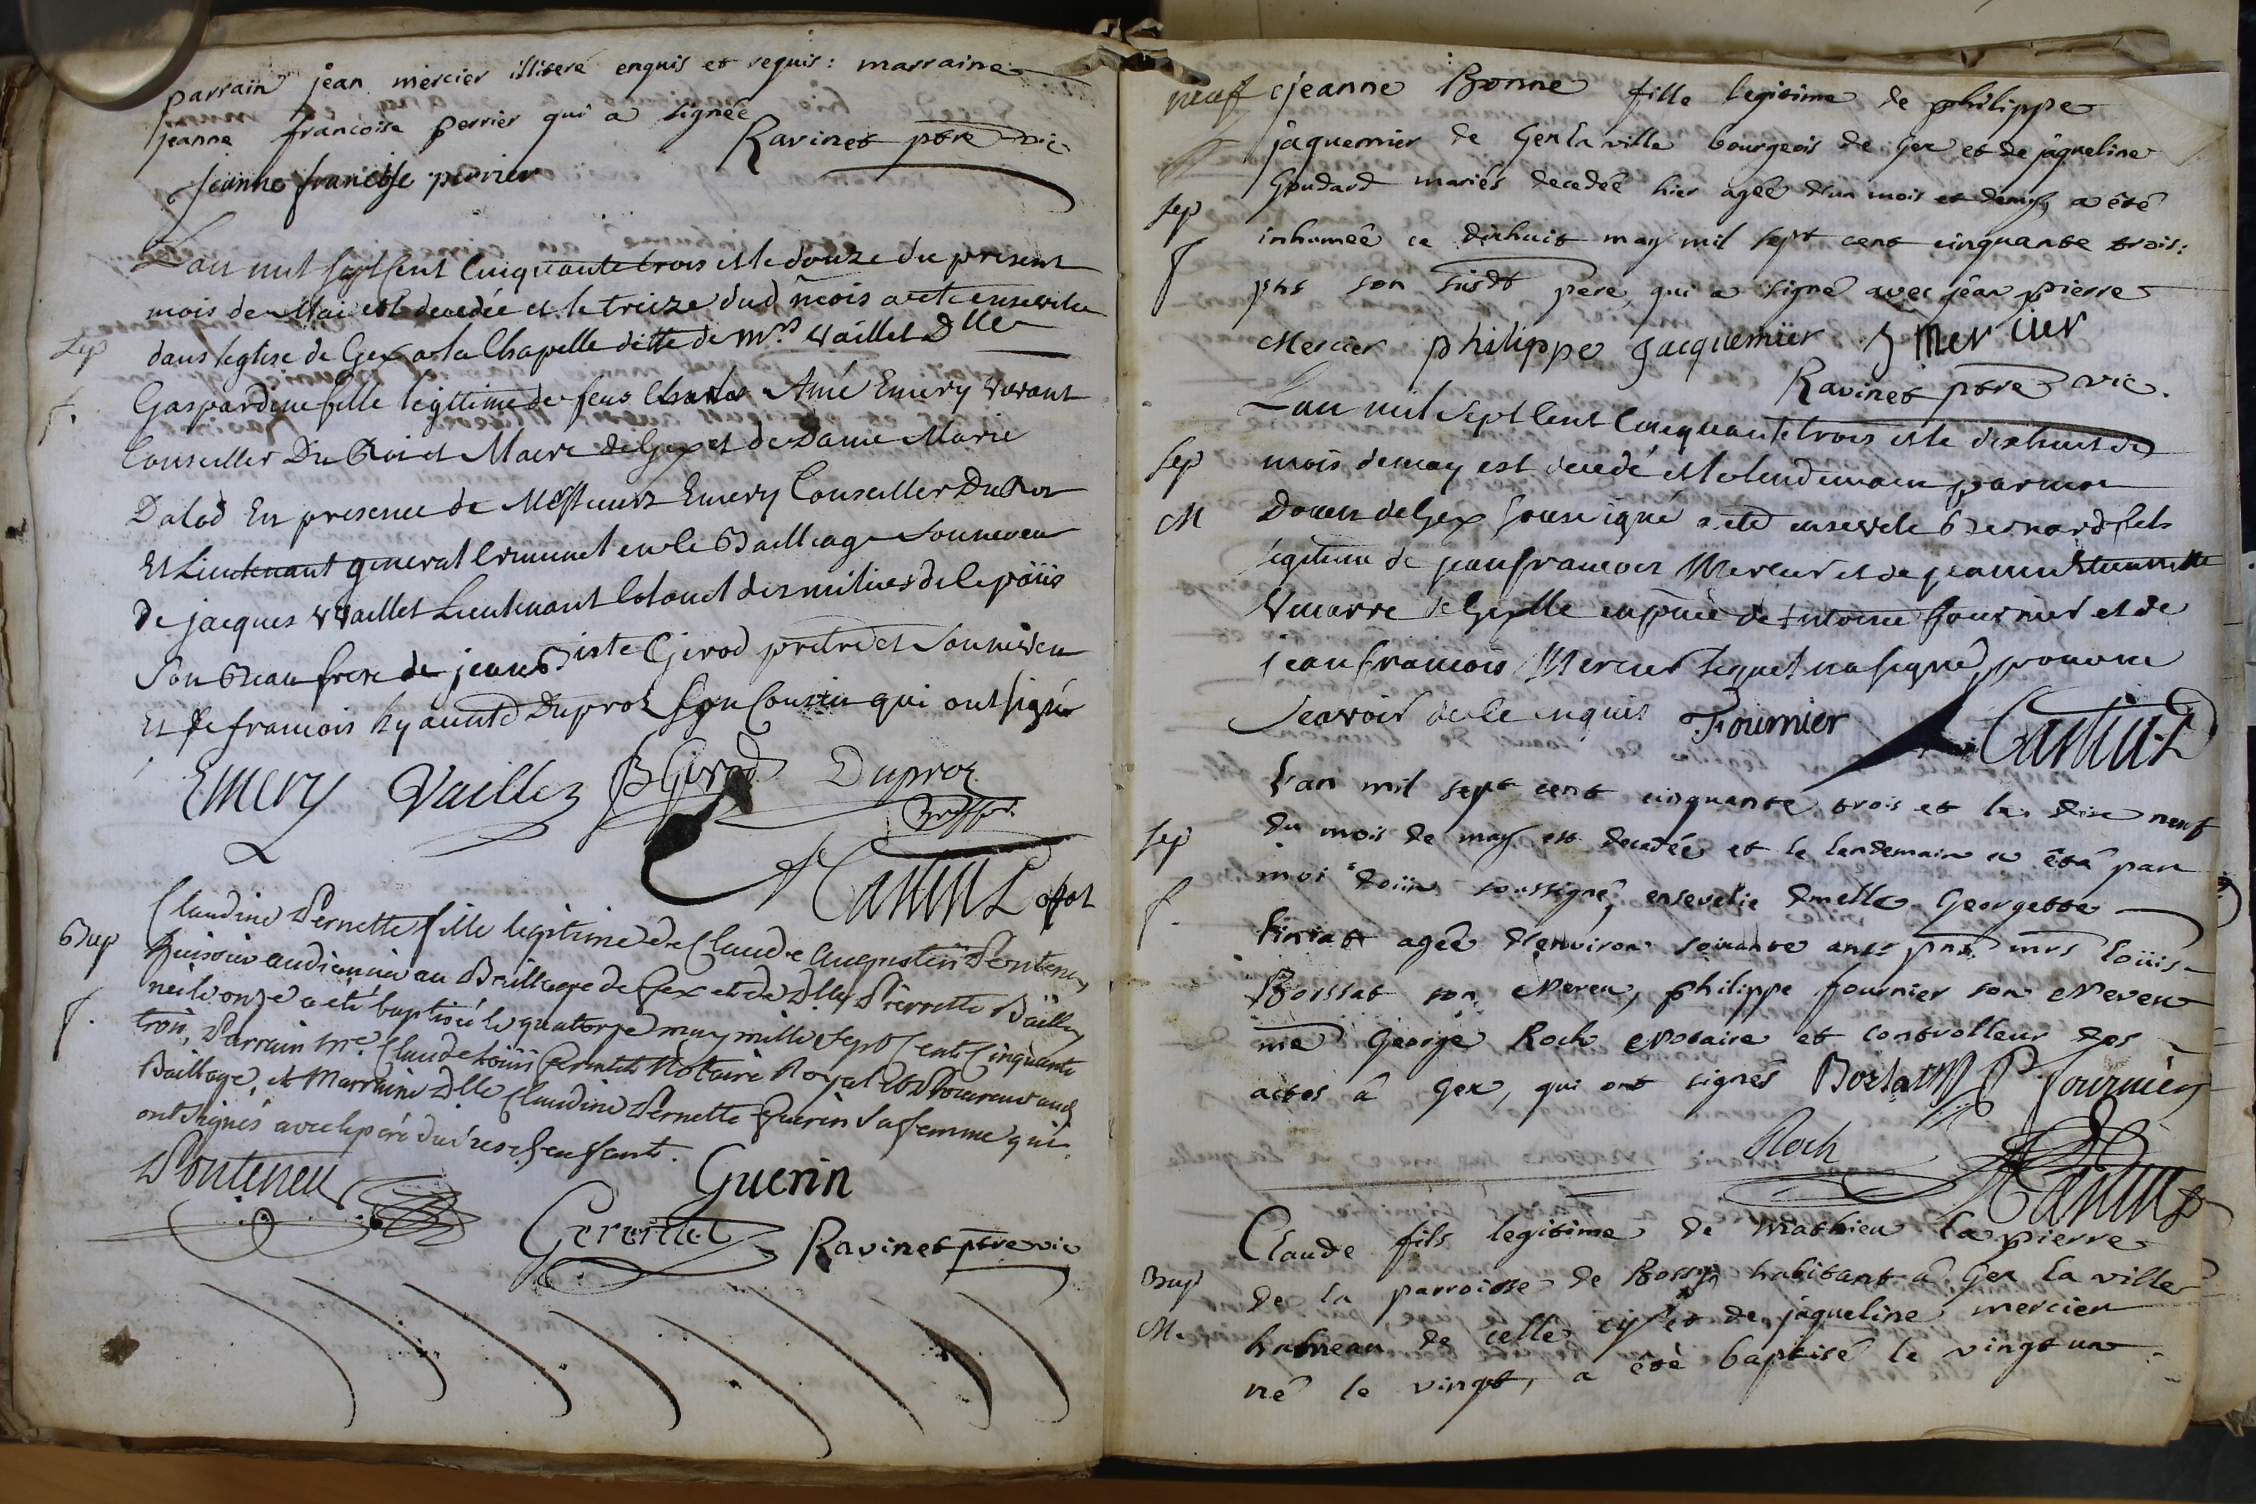 parrain jean mercier illiteré enquis et requis: marraine
jeanne francoise perrier qui a signée
Ravinet ptre vic.
jeanne francoise perrier
L'an mil sept cent cinquante trois et le douze du present
mois de Mai est decedée et le treize dud mois a eté ensevelie
Sep
dans l'eglise de Gex a la Chapelle ditte de mrs Vaillet Dlle
f.
Gaspardine fille legitime de feus Charles Amé Emery vivant
Conseiller Du Roi et Maire de Gex et de Dame Marie
Dalod En presence de Messieurs Emery Conseiller Du Roi
Et Lieutenant general Criminel en le Bailliage son neveu
De jacques Vaillet Lieutenant Colonel des milices de ce païis
son Beau frere de jean Btiste Girod prêtre et son neveu
Et de francois hyacinte Duproz son Cousin qui ont signé
Emery Vaillet JB Girod Duproz
Castin
Claudine Pernette fille legitime de Claude Augustin Ponteneu
Bap
huissier audiancier au Bailliage de Gex et de Dlle Pierrette Bailly
f.
née le onze a eté baptisée le quatorze may mille sept cent cinquante
trois, Parrain Me. Claude Loüis Notaire Royal et Procureur aud
Bailliage, et Marraine Dlle Claudine Pernette Guerin sa femme qui
ont signés avec le pere du enfant.
Ponteneu
Guerin
Ravinet ptre vic
neuf
jeanne Bonne fille legitime de philippe
jaquemier de Gex la ville bourgeois de Gex et de jaqueline
Goudard mariés decedée hier agée d'un mois et demy a été
Sep
inhumée ce dixhuit may mil sept cent cinquante trois:
f
pnt son susdt pere, qui a signé avec jean pierre
Mercier philippe Jacquemier J mercier
Ravinet ptre vic.
L'an mil sept cent cinquante trois et le dixhuit de
Sep
mois de may est decedé et le lendemain par moi
M
Doien de Gex soussigné a eté enseveli Bernard fils
legitime de jean francois Mercier et de
de Gex en pnce de Antoine fournier et de
jean francois Mercier lequel n'a signé pour ne
scavoir de ce enquis Fournier
Castin
L'an mil sept cent cinquante trois et le dixe neuf
Sep
du mois de may est decedée et le lendemain a été par
f.
moi doïin soussigné, ensevelie dmelle Georgette
agée d'environ soixante ans: pnt mrs loüis
Borssat son Neveu, philippe fournier son Neveu
me George Roch Notaire et controlleur des
actes à Gex, qui ont signés Borsat P fournier
Roch
Castin
Claude fils legitime de Mathieu Lapierre
Bap
de la parroisse de Bossy habitant à Gex la ville
M.
hameau de celle cy et de jaqueline mercier
né le vingt, a été baptisé le vingt un